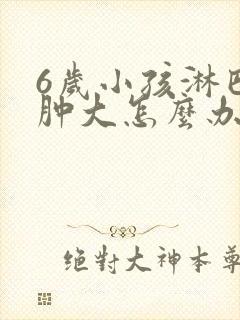 6歲小孩淋巴
肿大怎麼办
絕對大神本尊